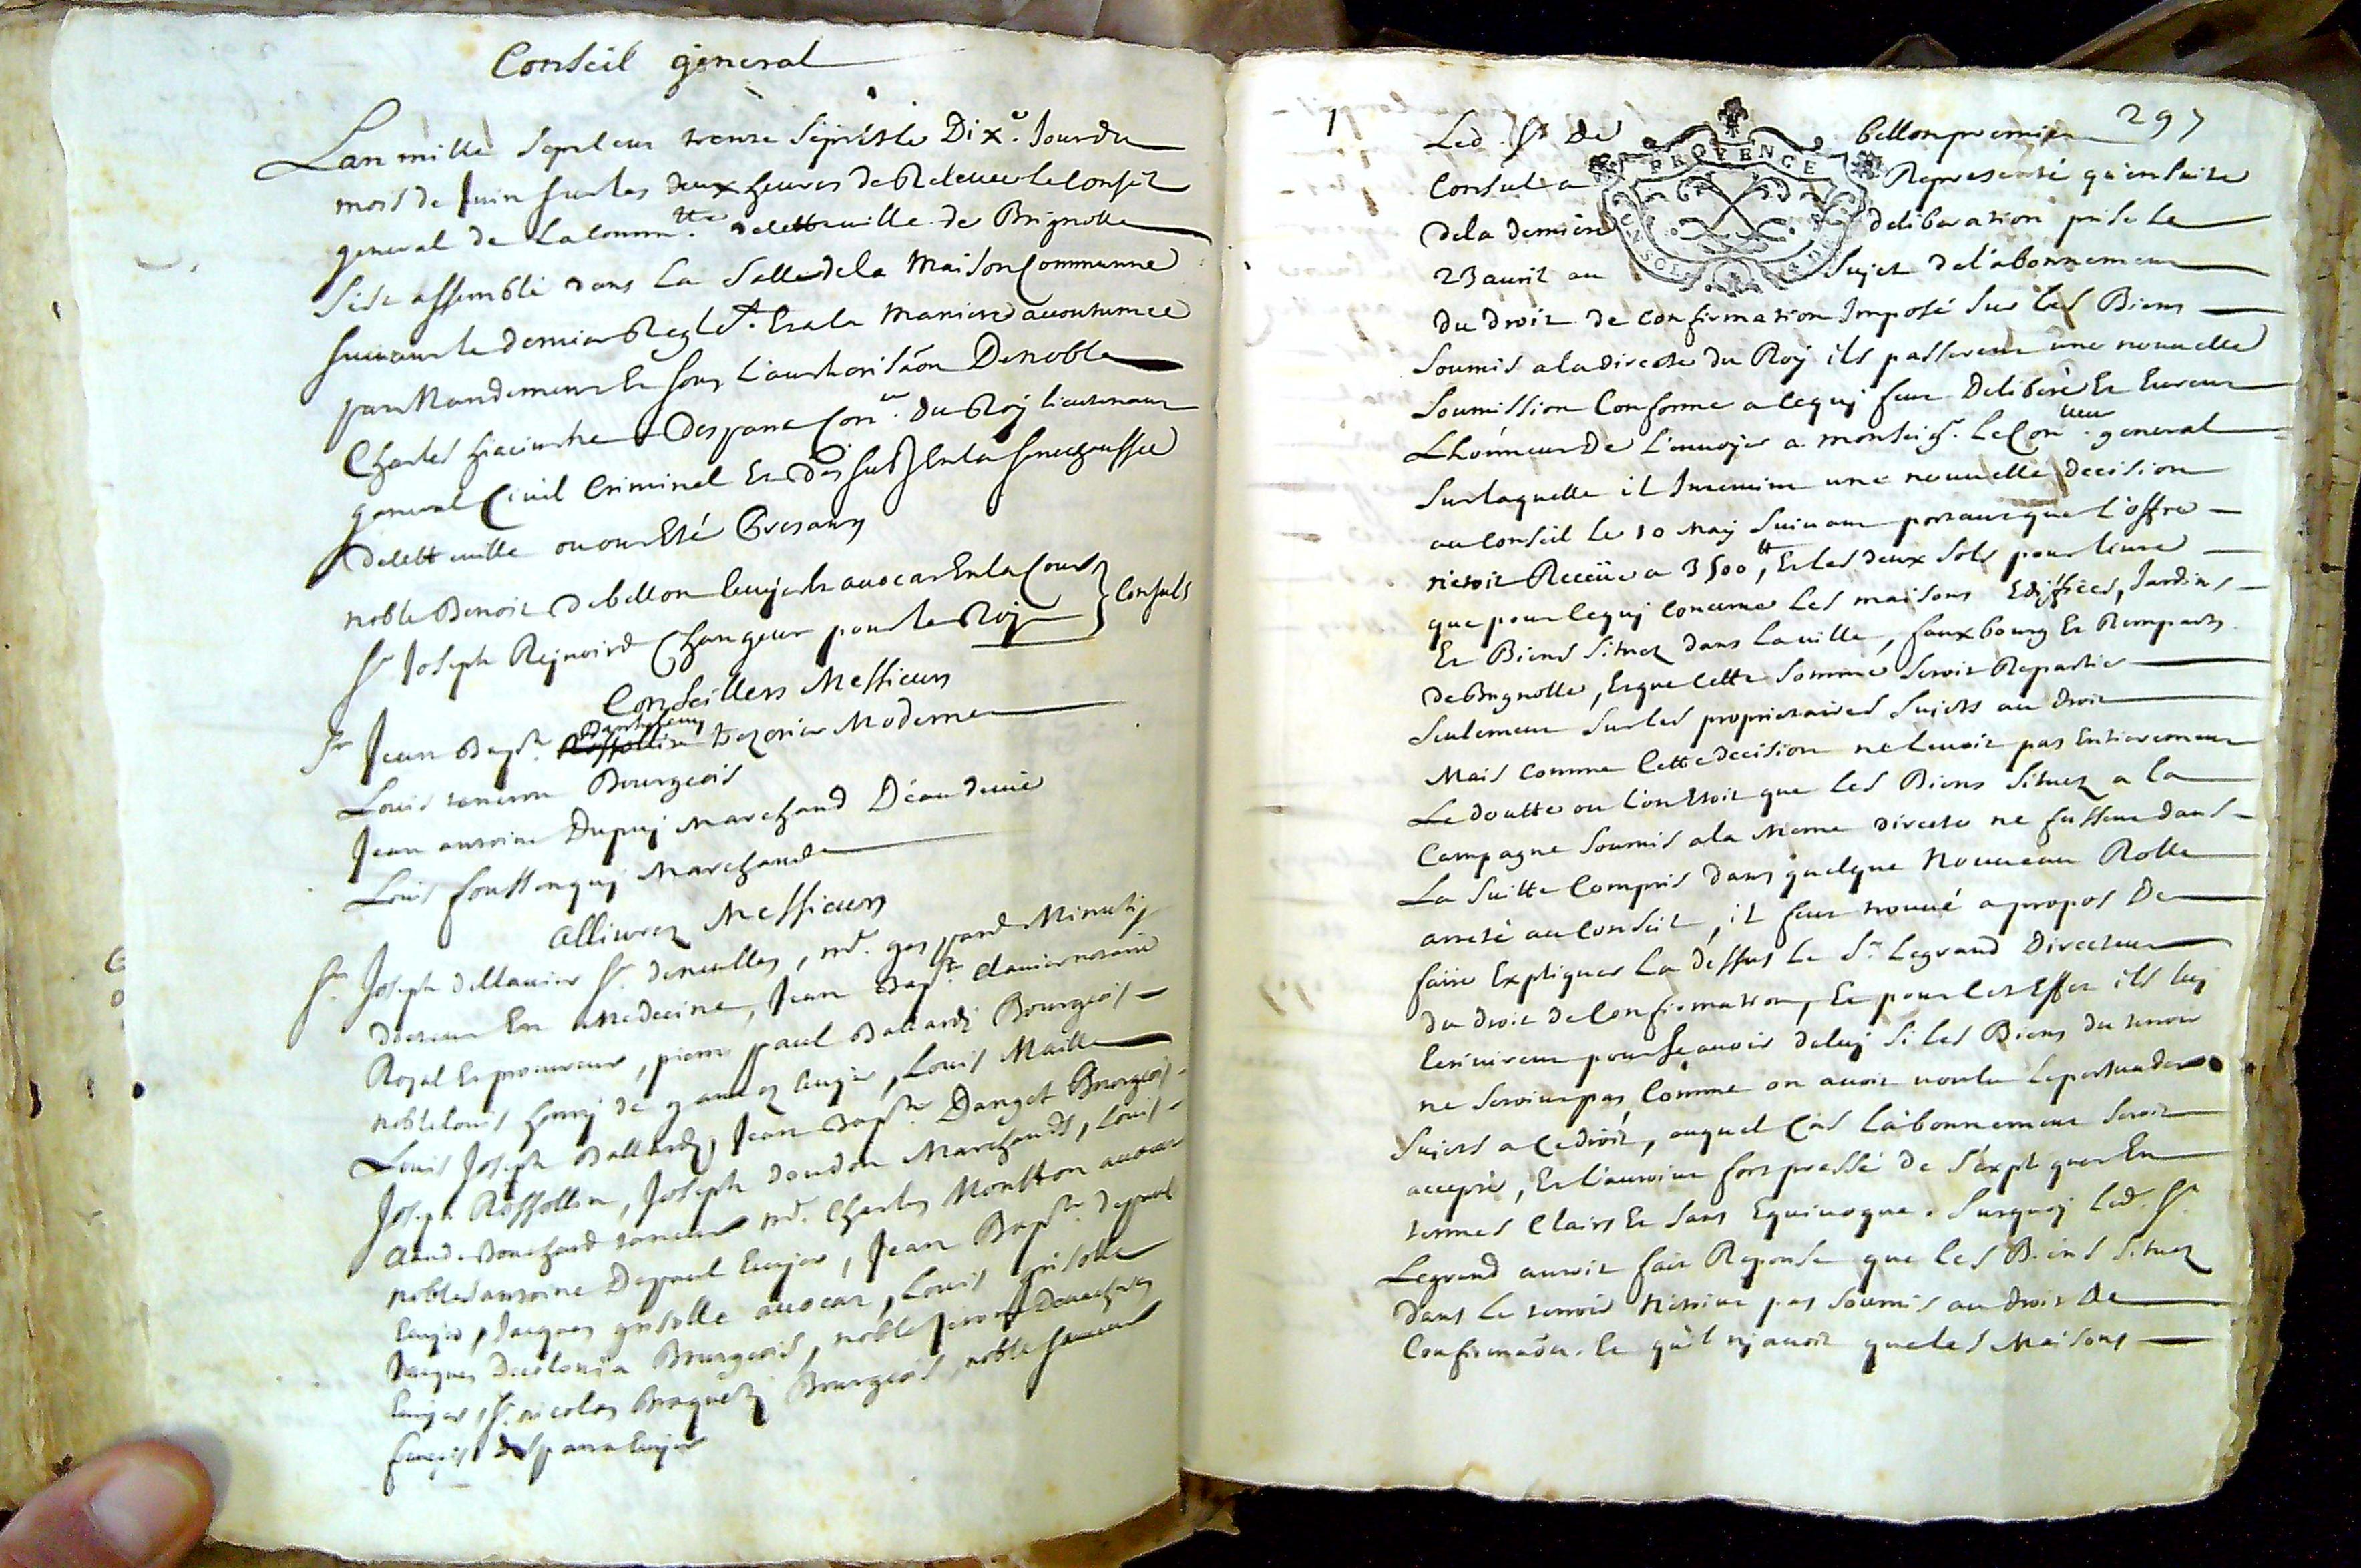 Conseil general
Lan mille sept cens trente sept & le Dix.e Jour du
mois de Juin sur les deux heures de Relevée le conseil
general de la comm.tté de cette ville de Brignolle
s'est assemblé dans la salle de la Maison Commune
suivant le dernier Regle.t Et a la maniere accoutumée
par Mandement Et sous l'authorisãon De noble
Charles hiacinthe Despana Con.er du Roy lieutenant
general Civil Criminel Et des En la senechaussée
de cette ville ou ont Eté Presans
noble Benoit de bellon Ecuyer & avocat En la Cour
Sr Joseph Rejnoird Changeur pour le Roy
Consuls
Conseillers Messieurs
Sr Jean Bapte. Barthelemy trezorier Moderne
Louis Bourgeois
Jean antoine Dupuy Marchand
Louis fouttonquy Marchand
allivrez Messieurs
Sr. Joseph Sr. , me. gaspard Minuty
docteur En medecine, Jean Bapte. Clavier notaire
Royal Et procureur, pierre paul Ballardy Bourgeois
noble Louis henry de Ecuyer, Louis Maille
Louis Joseph Ballardy, Jean Bapte. Danget Bourgeois
Joseph Rossollin, Joseph doudon Marchands, Louis
Claude Bouchard tanneur me. Charles Moutton avocat
nobles antoine Depaul Ecuyer, Jean Bapte. depaul
Ecuyer, Jacques grisolle avocat, Louis grisolle
Jacques Bourgeois, noble
Ecuyer, Sr. nicolas Braquety Bourgeois, noble
françois despana Ecuyer
1
297
Led. Sr de bellon premier
Consul a Representé qu'ensuite
de la derniere deliberation prise le
23 avril au sujet de l'abonnement
PROVENCE
du droit de confirmation Imposé sur les Biens
soumis a la directe du Roy ils passerent une nouvelle
soumission Conforme a ce quy fut Deliberé Et Eurent
Lhonneur De L'envoyer a monseig.r Le Con.lleur general
sur laquelle il Intervint une nouvelle decision
au conseil le 10 May suivant portant que l'offre
n'etoit Receüe a 3500tt, Et les deux sols pour livre
que pour ce quy Concerne les maisons Ediffices, Jardins
Et Biens situez dans la ville, fauxbourg Et Remparts
de Brignolle, Et que cette somme seroit Repartie
seulement sur les proprietaires sujets au droit
Mais comme Cette decision ne levoit pas Entierement
Le doutte ou l'on Etoit que les Biens situez a la
Campagne soumis a la meme directe ne fussent dans
La suitte Compris dans quelque Nouveau Rolle
arreté au Conseil, il fut trouvé a propos De
faire Expliquer la dessus Le Sr. Legrand Directeur
du droit de Confirmation, Et pour Cet Effet ils luy
Ecrivirent pour sçavoir de luy si les Biens du terroir
ne seroint pas Comme on avoit voulu le persuader
sujets a Ce droit, auquel Cas l'abonnement seroit
accepté, Et l'auroint fort pressé de s'expliquer En
termes Clairs Et sans Equivoque. Surquoy led. Sr.
Legrand auroit fait Reponse que les Biens situez
dans le terroir n'etoint pas soumis au droit de
Confirmaõn. Et qu'il n'y avoit que les Maisons